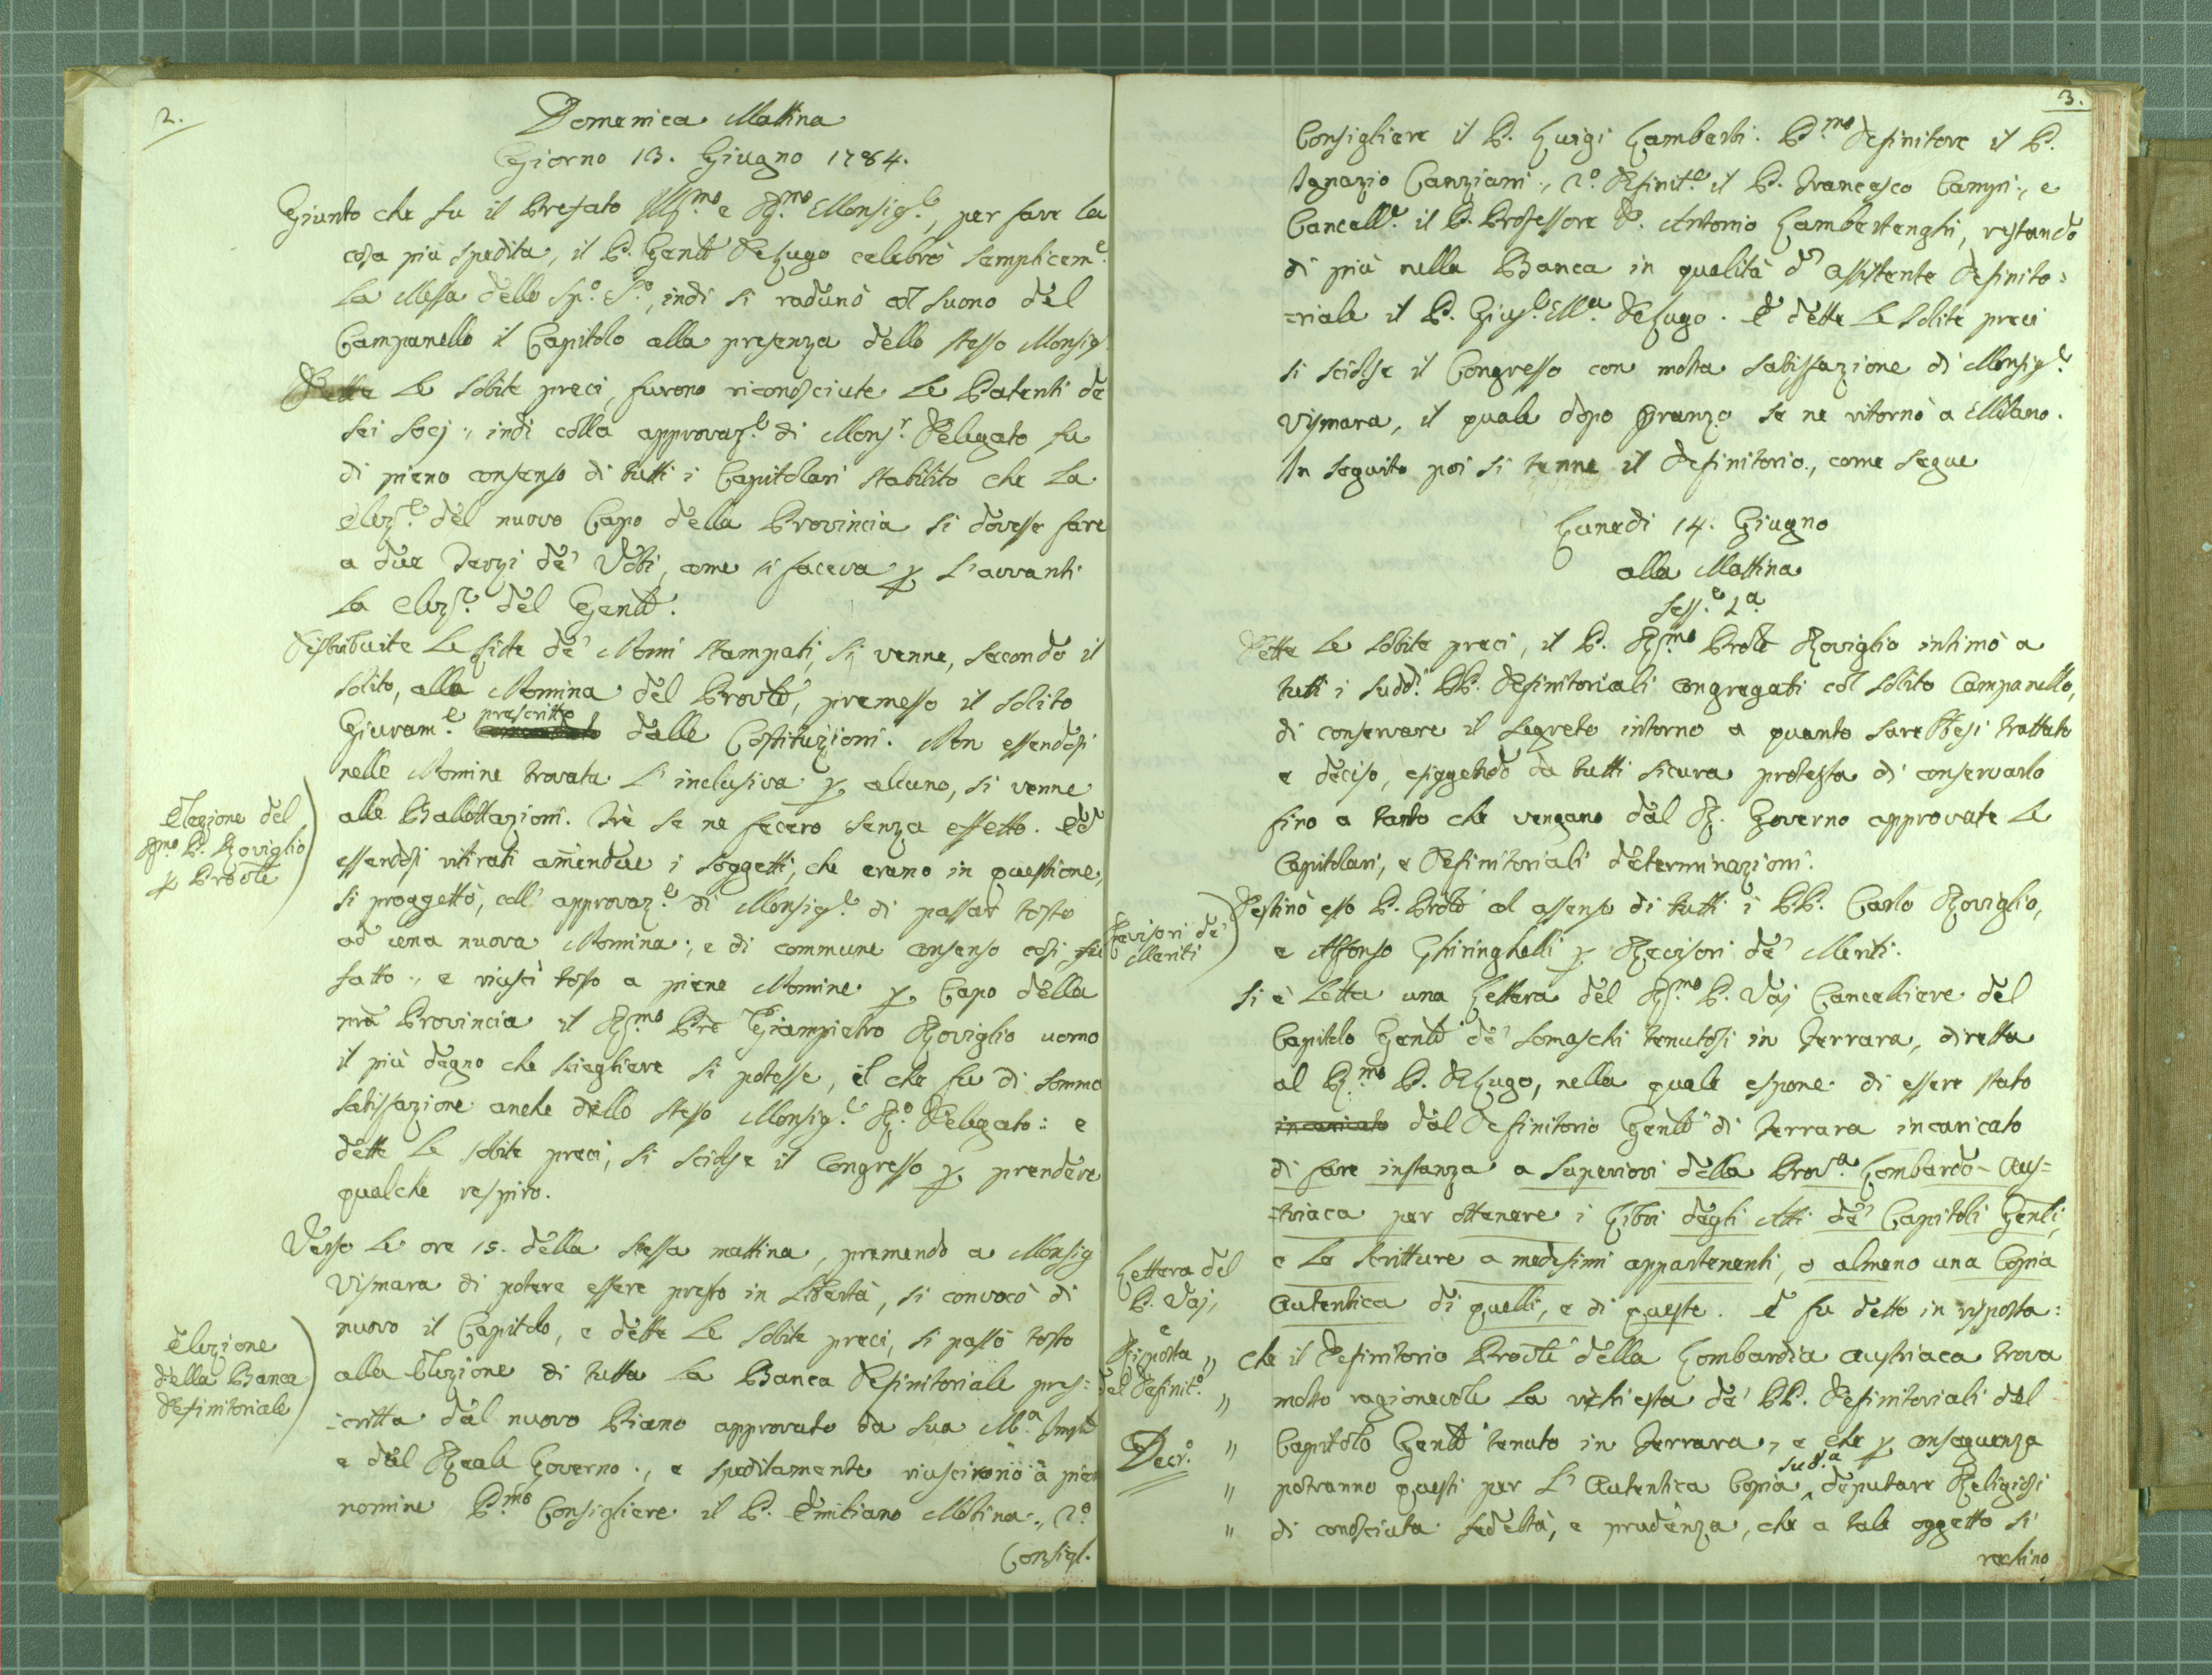 2.
Domenica Mattina
Giorno 13. Giugno 1784.
Giunto che fu il Prefato Ill.mo e R.mo Monsig.e, per fare la
cosa più spedita, il P. Genle De Lugo celebrò semplicem.e
la Messa dello Sp.o S.o, indi si radunò col suono del
Campanello il Capitolo alla presenza dello stesso Monsig.
Dette le solite preci, furono riconosciute le Patenti de
sei Socj., indi colla approvaz.e di Mons.r Delegato fu
di pieno consenso di tutti i Capitolari stabilito che la
elez.e del nuovo Capo della Provincia si dovesse fare
a due Terzi de' Voti, come si faceva p l'avvanti
la elez.e del Genle.
Distribuite le Liste de' Nomi stampati, si venne, secondo il
solito, alla Nomina del Provle, premesso il solito
Giuram.e prescritto dalle Costituzioni. Non essendosi
nelle Nomine trovata l'inclusiva p alcuno, si venne
alle Ballottazioni. Trè se ne fecero senza effetto. ed
essendosi ritirati amendue i soggetti, che erano in questione,
si proggettò, coll' approvaz.e di Monsig.e di passar tosto
ad una nuova Nomina., e di commune consenso così fu
fatto., e riuscì tosto a piene Nomine p Capo della
nrā Provincia il R.mo Prē Giampietro Roviglio uomo
il più degno che sciegliere si potesse, il che fu di somma
satisfazione anche dello stesso Monsig.e R.o Delegato.: e
dette le solite preci, si sciolse il Congresso p prendere
qualche respiro.
Verso le ore 15. della stessa mattina, premendo a Monsig
Vismara di potere essere presto in libertà, si convocò di
nuovo il Capitolo, e dette le solite preci, si passò tosto
alla Elezione di tutta la Banca Definitoriale pres=
=critta dal nuovo Piano approvato da Sua M.a Imple
e dal Reale Governo., e speditamente riuscirono a pien
nomine P.mo Consigliere il P. Emiliano Molina., 2.o
Consigl.
Elezione del
R.mo P. Roviglio
p Provle
Elezione
della Banca
Definitoriale
3.
Consigliere il P. Luigi Lamberti. P.mo Definitore il P.
Ignazio Canziani., 2.o Definit.e il P. Francesco Campi., e
Cancell.e il P. Professore D. Antonio Lambertenghi, restando
di più nella Banca in qualità d' assistente Definito=
=riale il P. Gius.e M.a De Lugo. E dette le solite preci
si sciolse il Congresso con molta satisfazione di Monsig.e
Vismara, il quale dopo pranzo se ne ritornò a Milano.
In seguito poi si tenne il Definitorio., come segue
Lunedi 14. Giugno
alla Mattina
Sess.e 1.a
Dette le solite preci, il P. R.mo Provle Roviglio intimò a
tutti i sudd.i PP. Definitoriali congregati col solito Campanello,
di conservare il segreto intorno a quanto sarebbesi trattato
e deciso, esiggendo da tutti sicura protesta di conservarlo
fino a tanto che vengano dal R. Governo approvate le
Capitolari, e Definitoriali determinazioni.
Destinò esso P. Provle col assenso di tutti i PP. Carlo Roviglio,
e Alfonso Ghiringhelli p Revisori de' Meriti.
Si è letta una Lettera del R.mo P. Vaj Cancelliere del
Capitolo Genle de' Somaschi tenutosi in Ferrara, diretta
al R.mo P. De Lugo, nella quale espone di essere stato
incaricato dal Definitorio Genle di Ferrara incaricato
di fare instanza a Superiori della Prov.a Lombardo-Aus=
=triaca per ottenere i Libri degli Atti de' Capitoli Genli,
e le Scritture a medesimi appartenenti, o almeno una Copia
Autentica di quelli, e di queste. E fu detto in risposta:
" che il Definitorio Provle della Lombardia Austriaca trova
" molto ragionevole la richiesta de' PP. Definitoriali del
" Capitolo Genle tenuto in Ferrara, e che p conseguenza
" potranno questi per l'Autentica Copia sud.a deputare Religiosi
" di conosciuta fedeltà, e prudenza, che a tale oggetto si
rechino
Revisori de'
Meriti
Lettera del
P. Vaj,
e
Risposta
del Definit.o
Decr.o